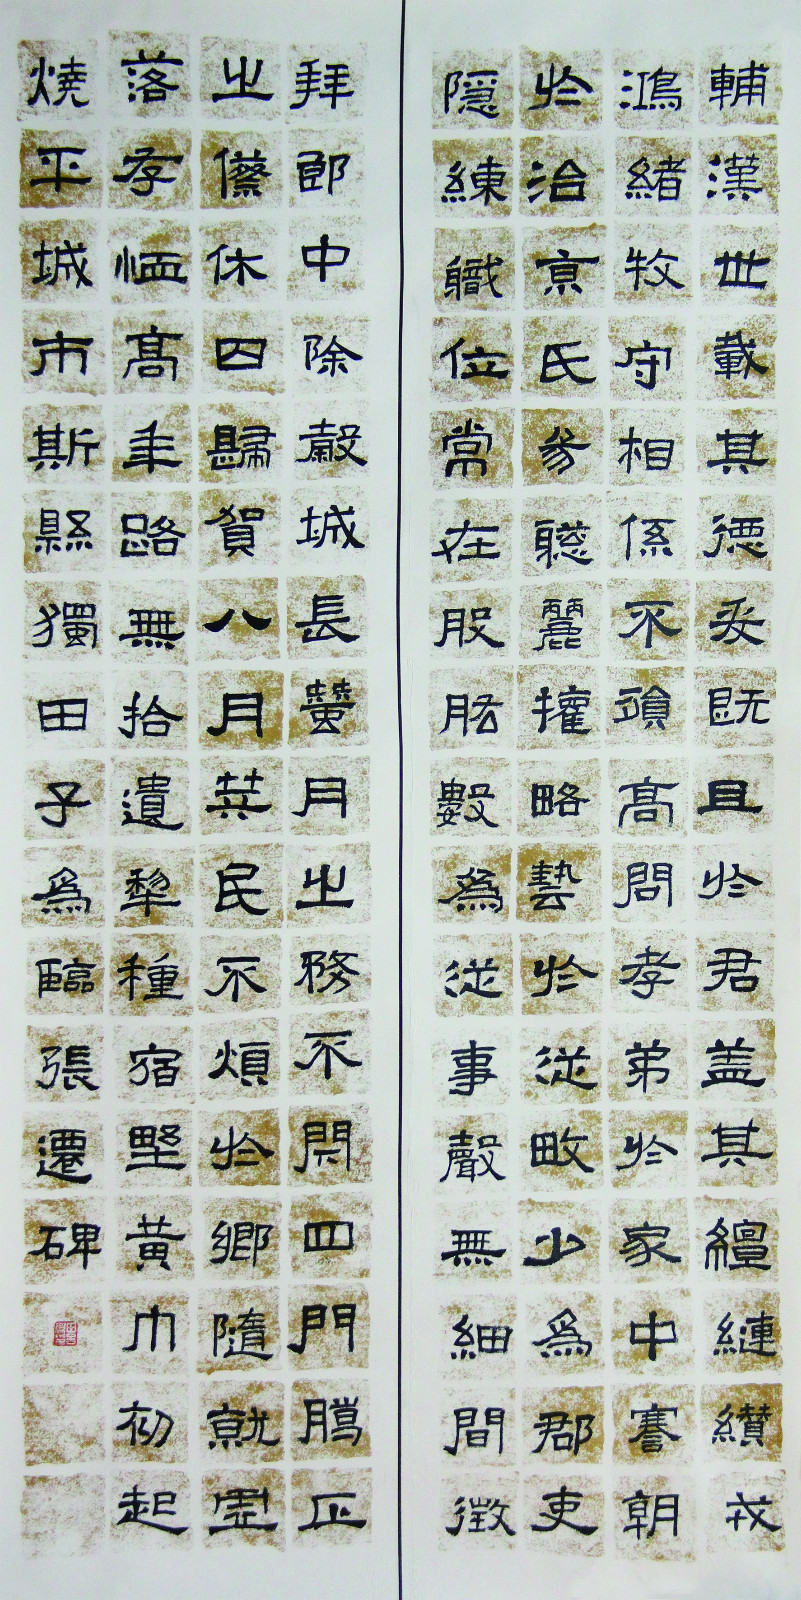 輔漢世載其德爰既且於君盖其繵縺纘戎
鴻緒牧守相係不殞高問孝弟於家中謇朝
於治京氏易聰麗權略藝於從畋少為郡吏
隱練職位常在股肱數為從事聲無細間徵
拜郎中除穀城長蠶月之務不閇四門臈正
之傺休囚歸賀八月筭民不煩於鄉隨就虛
落存恤高年路無拾遺犁種宿野黄巾初起
燒平城市斯縣獨田子為臨張遷碑